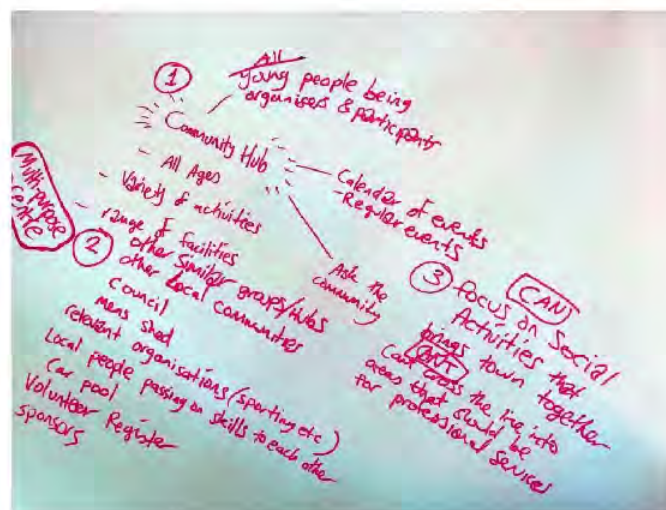 ①
All
young people being
organisers & participants
Community Hub
- All Ages
- Variety of activities
- range of facilities
Multi-purpose
centre
Calendar of events
- Regular events
Ask the
community
②
other similar groups/Hubs
other Local communities
council
mens shed
relevant organisations (sporting etc)
Local people passing on skills to each other
Car pool
Volunteer Register
sponsors
③
CAN
Focus on Social
Activities that
brings town together
CANT
Cant cross the line into
areas that should be
for professional services